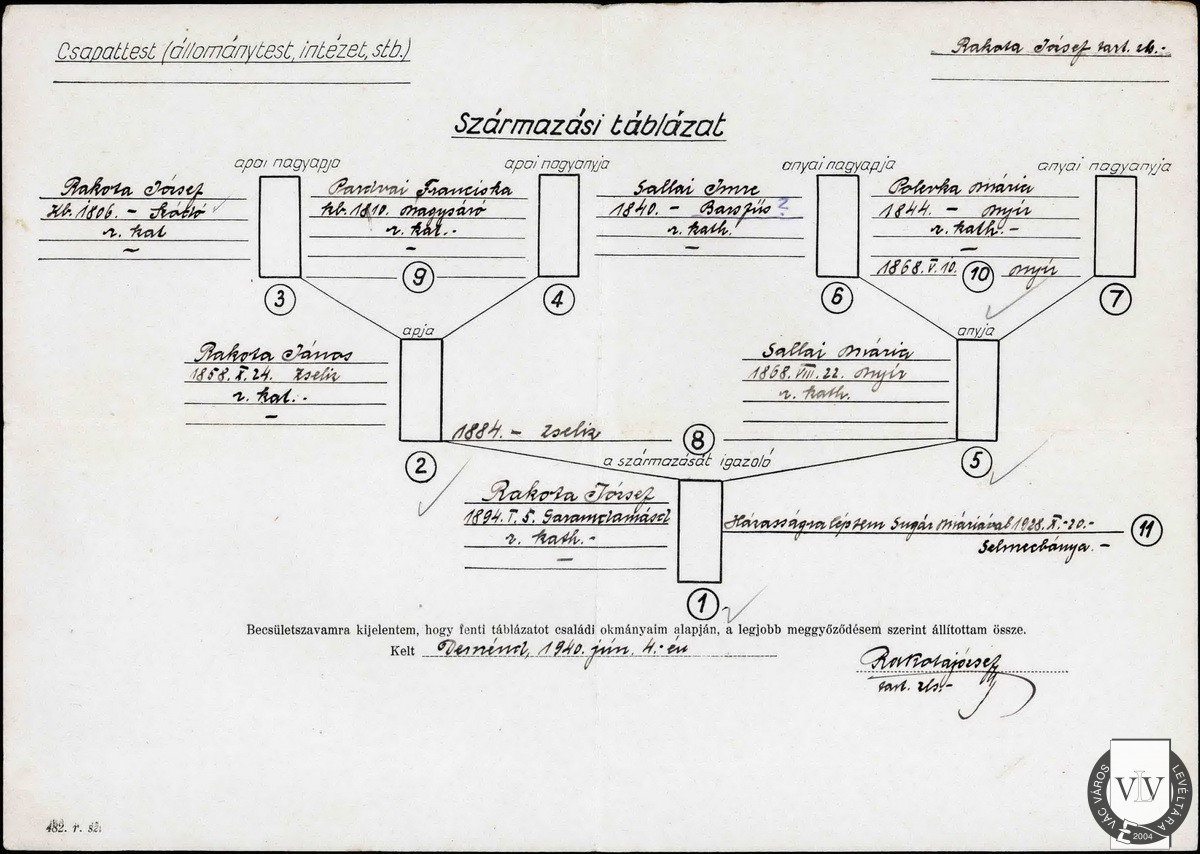 Csapattest (állománytest, intézet, stb.)
Rakota József tart. zls.-
Származási táblázat
apai nagyapja
Rakota József
Kb. 1806. -
r. kat
3
apai nagyanyja
Franciska
kb. 1810. Nagysáró
r. kat.-
4
9
anyai nagyapja
Sallai Imre
1840. - Barsfüs ?
r. kath.
6
anyai nagyanyja
Polevka Mária
1844. - Nyír
r. kath.-
1868. V. 10. 10 Nyír
7
apja
Rakota János
1858. X. 24. Zseliz
r. kat.-
2
anyja
Sallai Mária
1868. VIII. 22. Nyír
r. kath.
5
1884. - Zseliz 8
a származását igazoló
Rakota József
1894. I. 5. Garamdamásd
r. kath.-
1
Házasságra léptem Sugár Máriával 1928. X.-20.- 11
Selmecbánya.-
Becsületszavamra kijelentem, hogy fenti táblázatot családi okmányaim alapján, a legjobb meggyőződésem szerint állítottam össze.
Kelt Deménd, 1940. jún. 4.-én
Rakota József
tart. zls.-
482. r. sz.
VÁC VÁROS LEVÉLTÁRA
VLV
2004